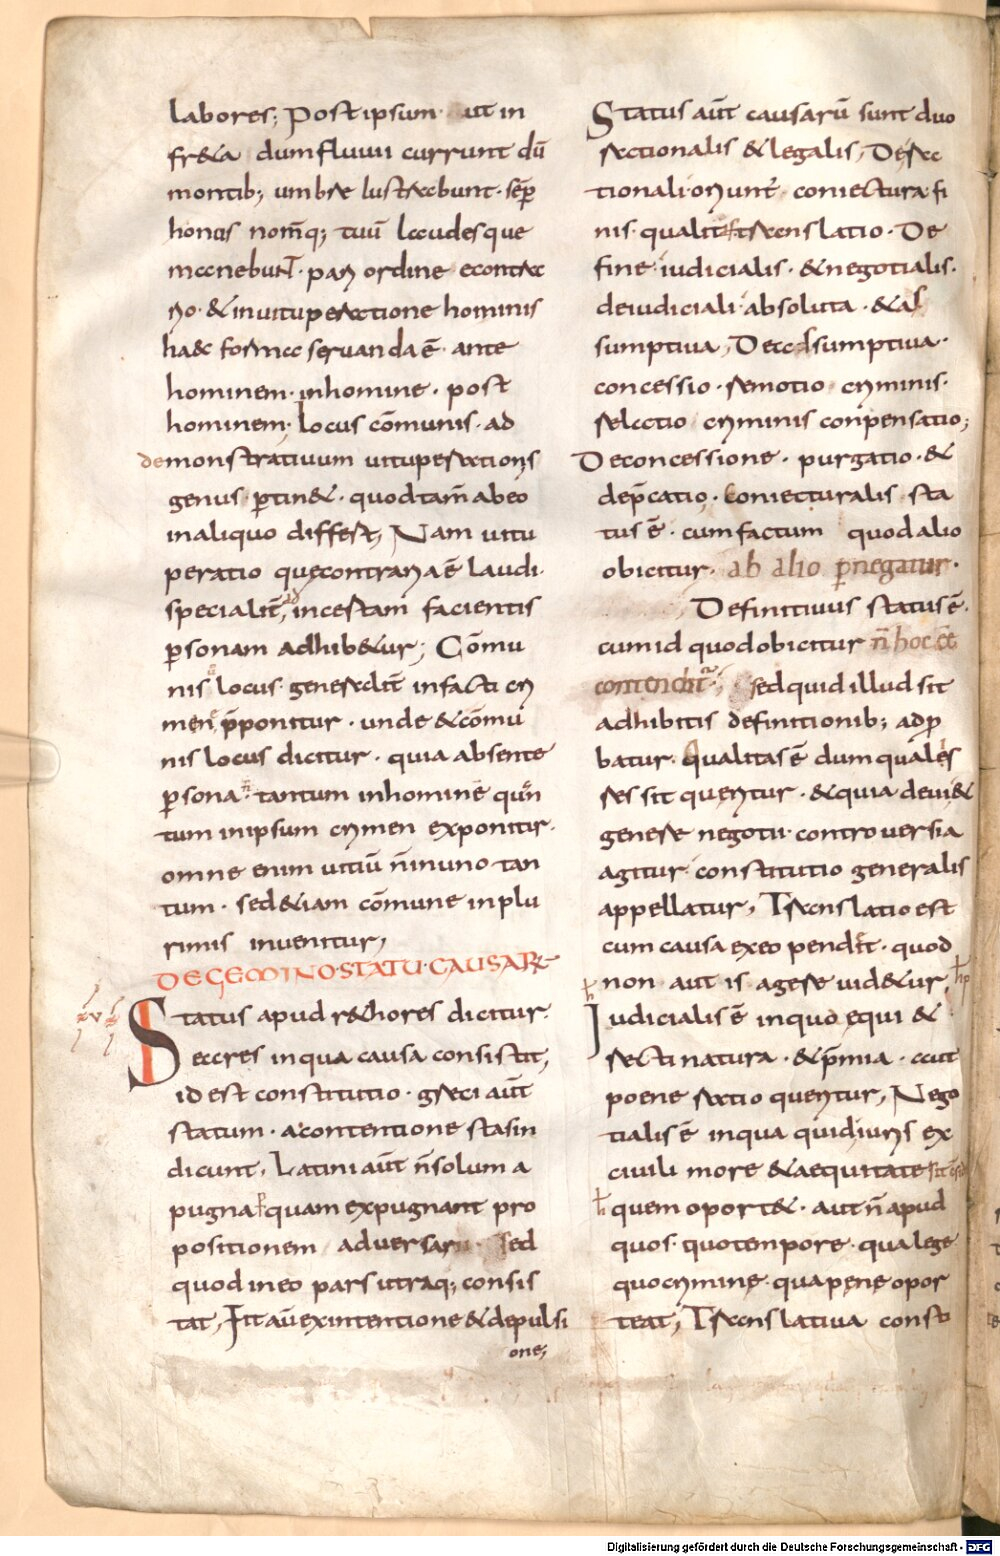 labores; Post ipsum · ut in
fr&a dum fluuii currunt dū
montib; umbrae lustrabunt · sēp
honos nom̄q; tuū laudes que
manebunt · pari ordine econtra
rio · & in uituperatione hominis
haec forma seruanda ē · ante
hominem · in homine · post
hominem; Locus cōmunis · ad
demonstratiuum uituperationis
genus ꝑtin& · quod tam̄ ab eo
in aliquo differt; Nam uitu
peratio que contraria ē laudi ·
specialit̄ in certam facientis
ꝑsonam adhib&ur; Cōmu
nis locus generalit̄ in facti cri
men p̄ponitur · unde & cōmu
nis locus dicitur · quia absente
ꝑsona · tantum in homine quan
tum in ipsum crimen exponitur ·
omne enim uitiū n̄ in uno tan
tum · sed &iam cōmune in plu
rimis inuenitur;
DE GEMINO STATU CAUSARꝜ
xvi
Status apud r&hores dicitur ·
ea res in qua causa consistit;
id est constitutio · greci aut̄
statum · a contentione stasin
dicunt; Latini aut̄ n̄ solum a
pugna quam expugnant pro
positionem aduersarii sed
quod in eo pars utraq; consis
tat; Fit aū ex intentione & depulsi
one;
Status aut̄ causarū sunt duo
rationalis & legalis; De ra
tionali oriunt̄ · coniectura · fi
nis · qualit translatio · De
fine · iudicialis · & negotialis ·
de iudiciali · absoluta · & as
sumptiua; De adsumptiua ·
concessio · remotio criminis ·
relatio criminis conpensatio;
De concessione · purgatio · &
dep̄catio · Coniecturalis sta
tus ē · cum factum quod alio
obicitur · ab alio ꝑnegatur ·
Definitiuus status ē ·
cum id quod obicitur n̄ hoc ēē
contendit̄ sed quid illud sit
adhibitis definitionib; adꝓ
batur · Qualitas ē dum quales
res sit queritur · & quia de ui &
genere negotii controuersia
agitur constitutio generalis
appellatur; Translatio est
cum causa ex eo pend&̄ · quod
non aut is agere uid&ur;
Iudicialis ē in qua equi &
recti natura · & p̄mia · aut
poene ratio queritur; Nego
tialis ē in qua quid iuris ex
ciuili more & aequitate sit
quem oport& · aut n̄ apud
quos · quo tempore · qua lege
quo crimine · qua pene opor
teat; Translatiua consti
Digitalisierung gefördert durch die Deutsche Forschungsgemeinschaft - DFG